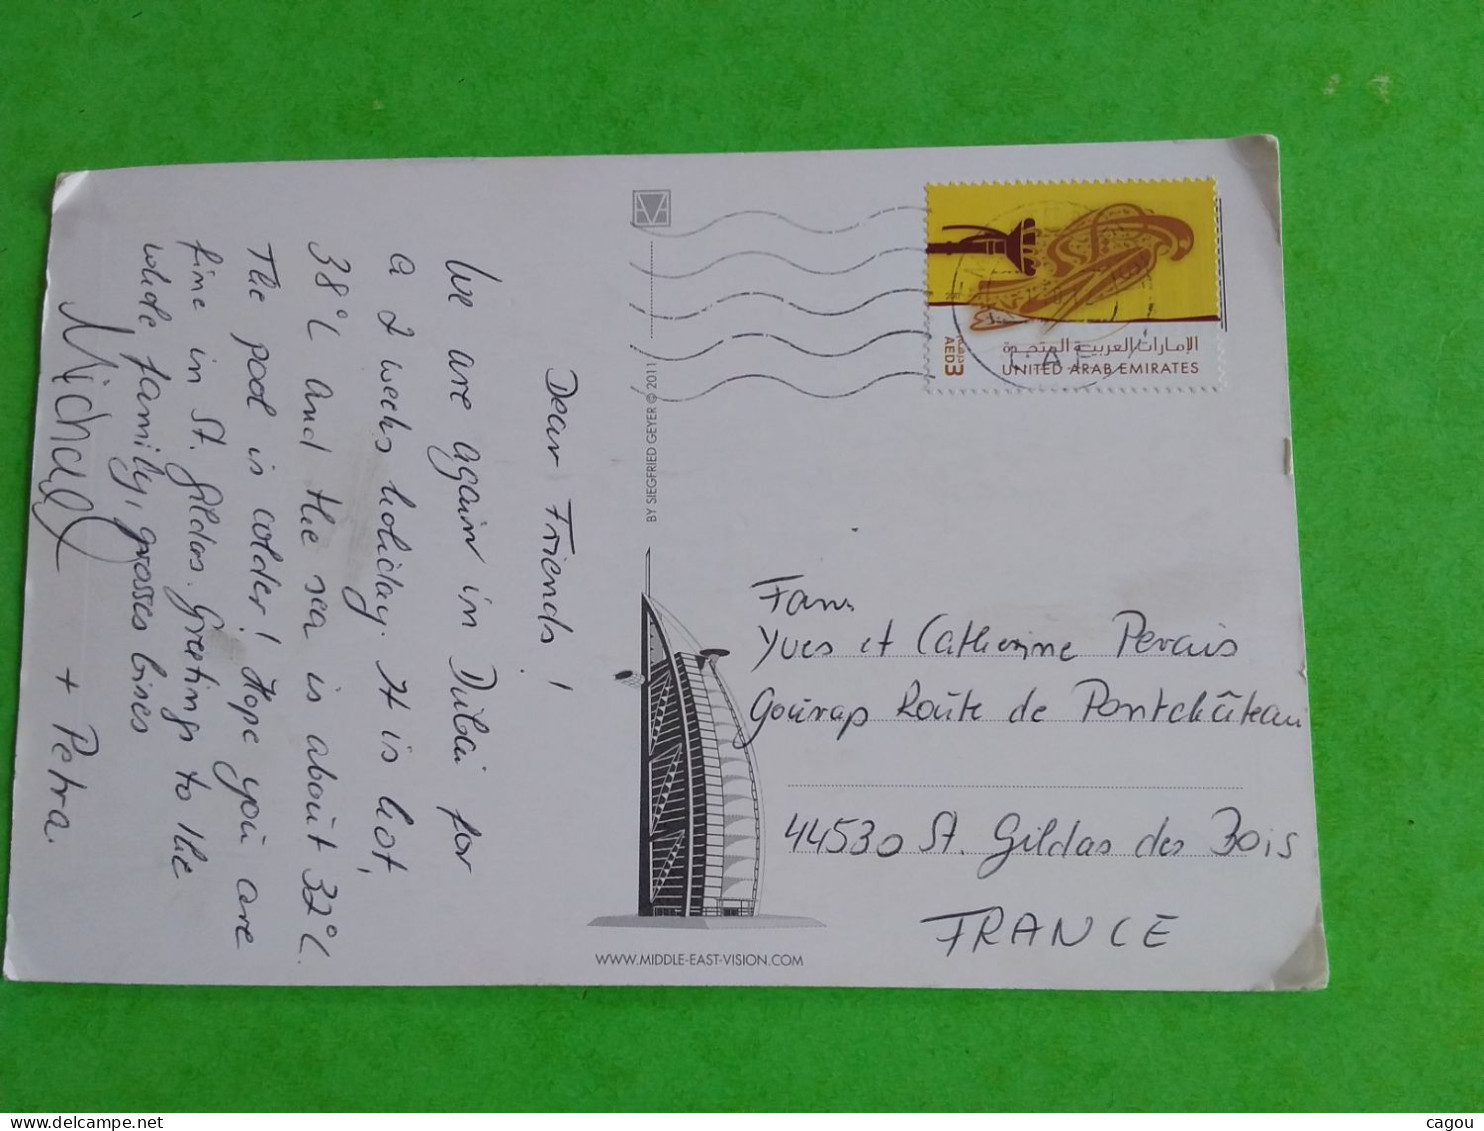 Dear Friends!
We are again in Dubai for
a 2 weeks holiday. It is hot,
38°C and the sea is about 32°C.
The pool is colder! Hope you are
fine in St. Gildas. Greetings to the
whole family, grosses bises
Michael + Petra.
BY SIEGFRIED GEYER © 2011
WWW.MIDDLE-EAST-VISION.COM
الإمارات العربية المتحدة
UNITED ARAB EMIRATES
AED3
Fam.
Yves et Catherine Perais
Route de Pontchâteau
44530 St. Gildas des Bois
FRANCE
cagou